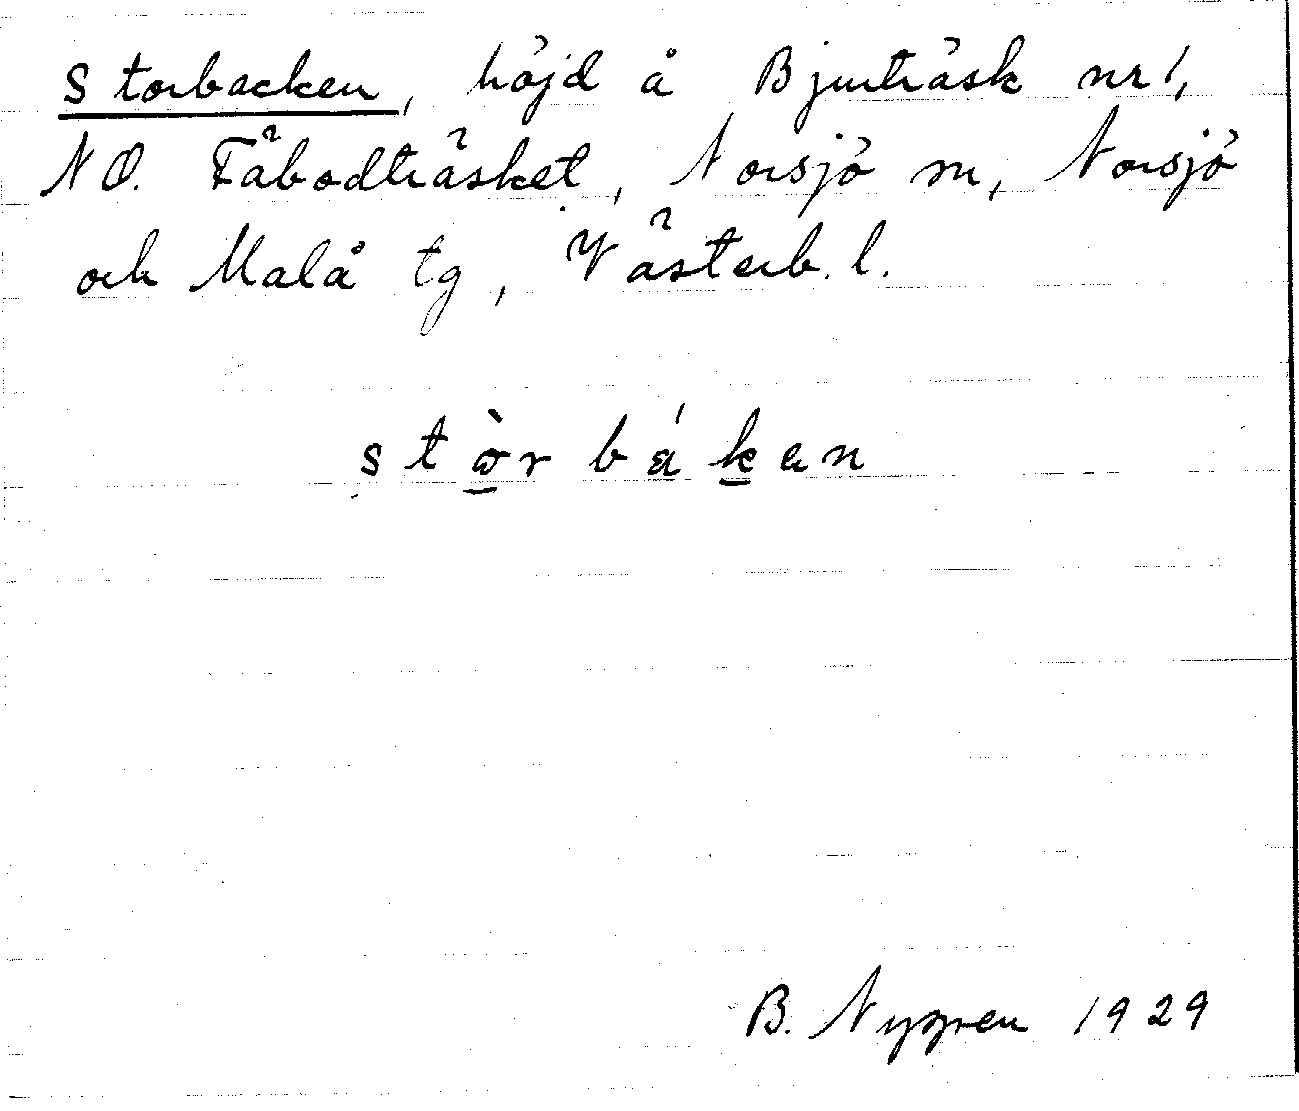 Storbacken, höjd å Bjurträsk nr 1,
NO. Fäbodträsket, Norsjö sn, Norsjö
och Malå tg, Västerb. l.
stòrbákan
B. Nygren 1929